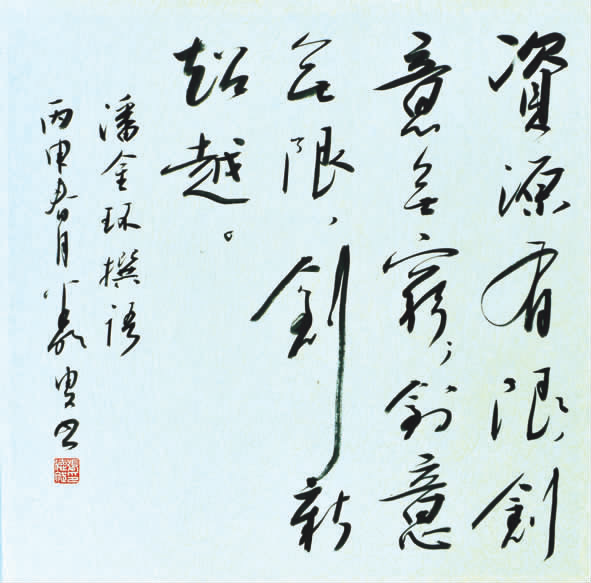 資源有限,創
意無窮;創意
無限,創新
超越。
潘金环撰语
丙申春月书